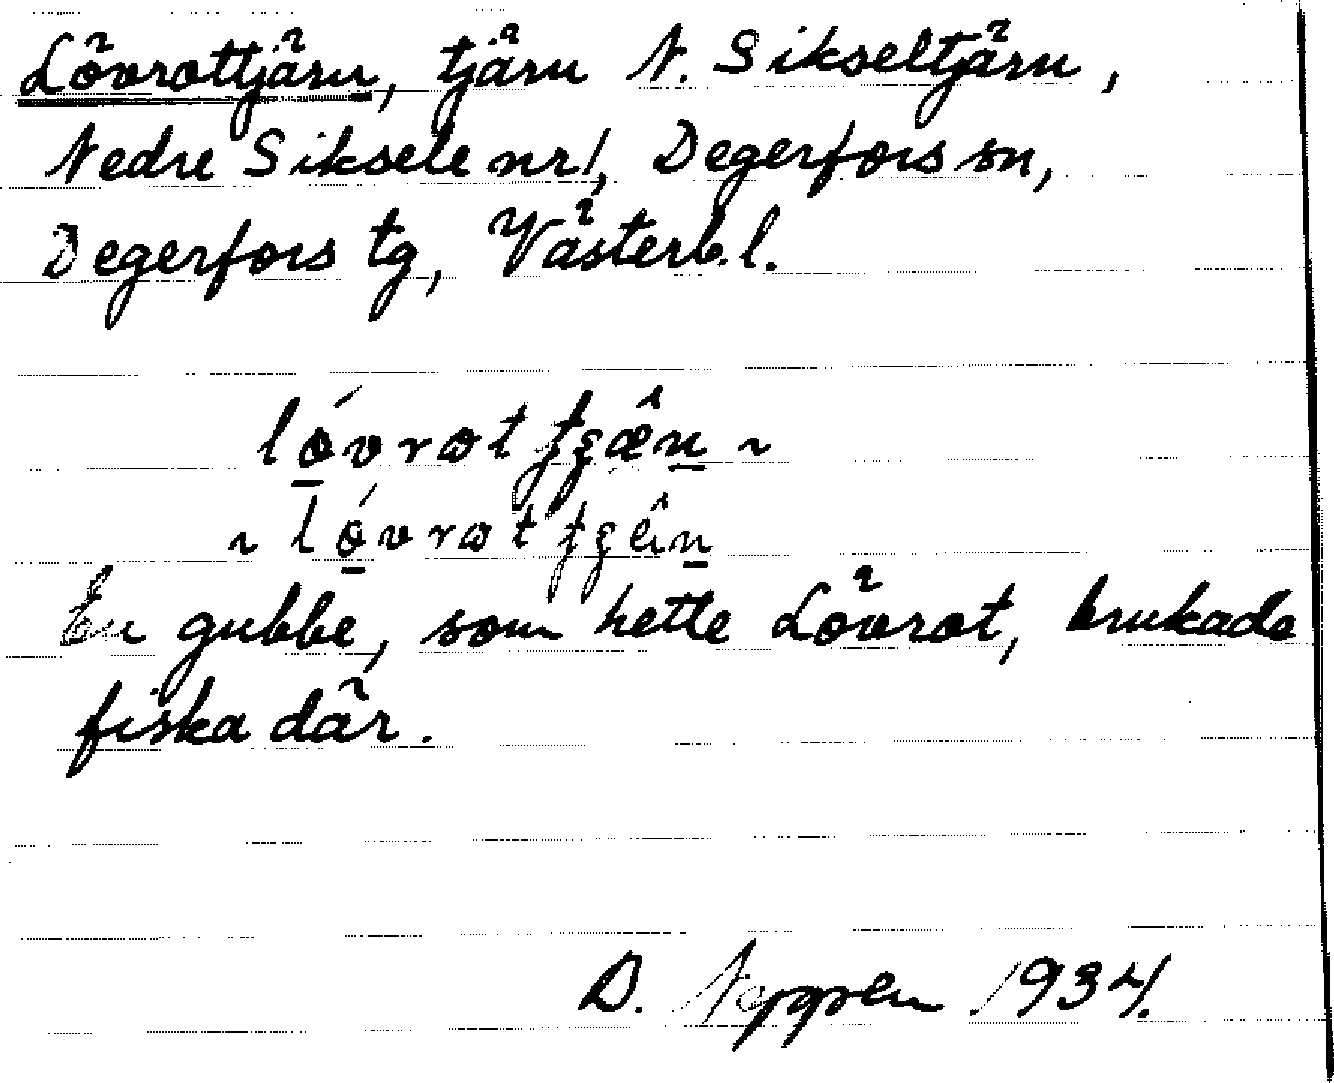 Lövrottjärn, tjärn N. Sikseltjärn,
Nedre Siksele nr 1, Degerfors sn,
Degerfors tg, Västerb. l.
En gubbe, som hette Lövrot, brukade
fiska där.
D. 1934.